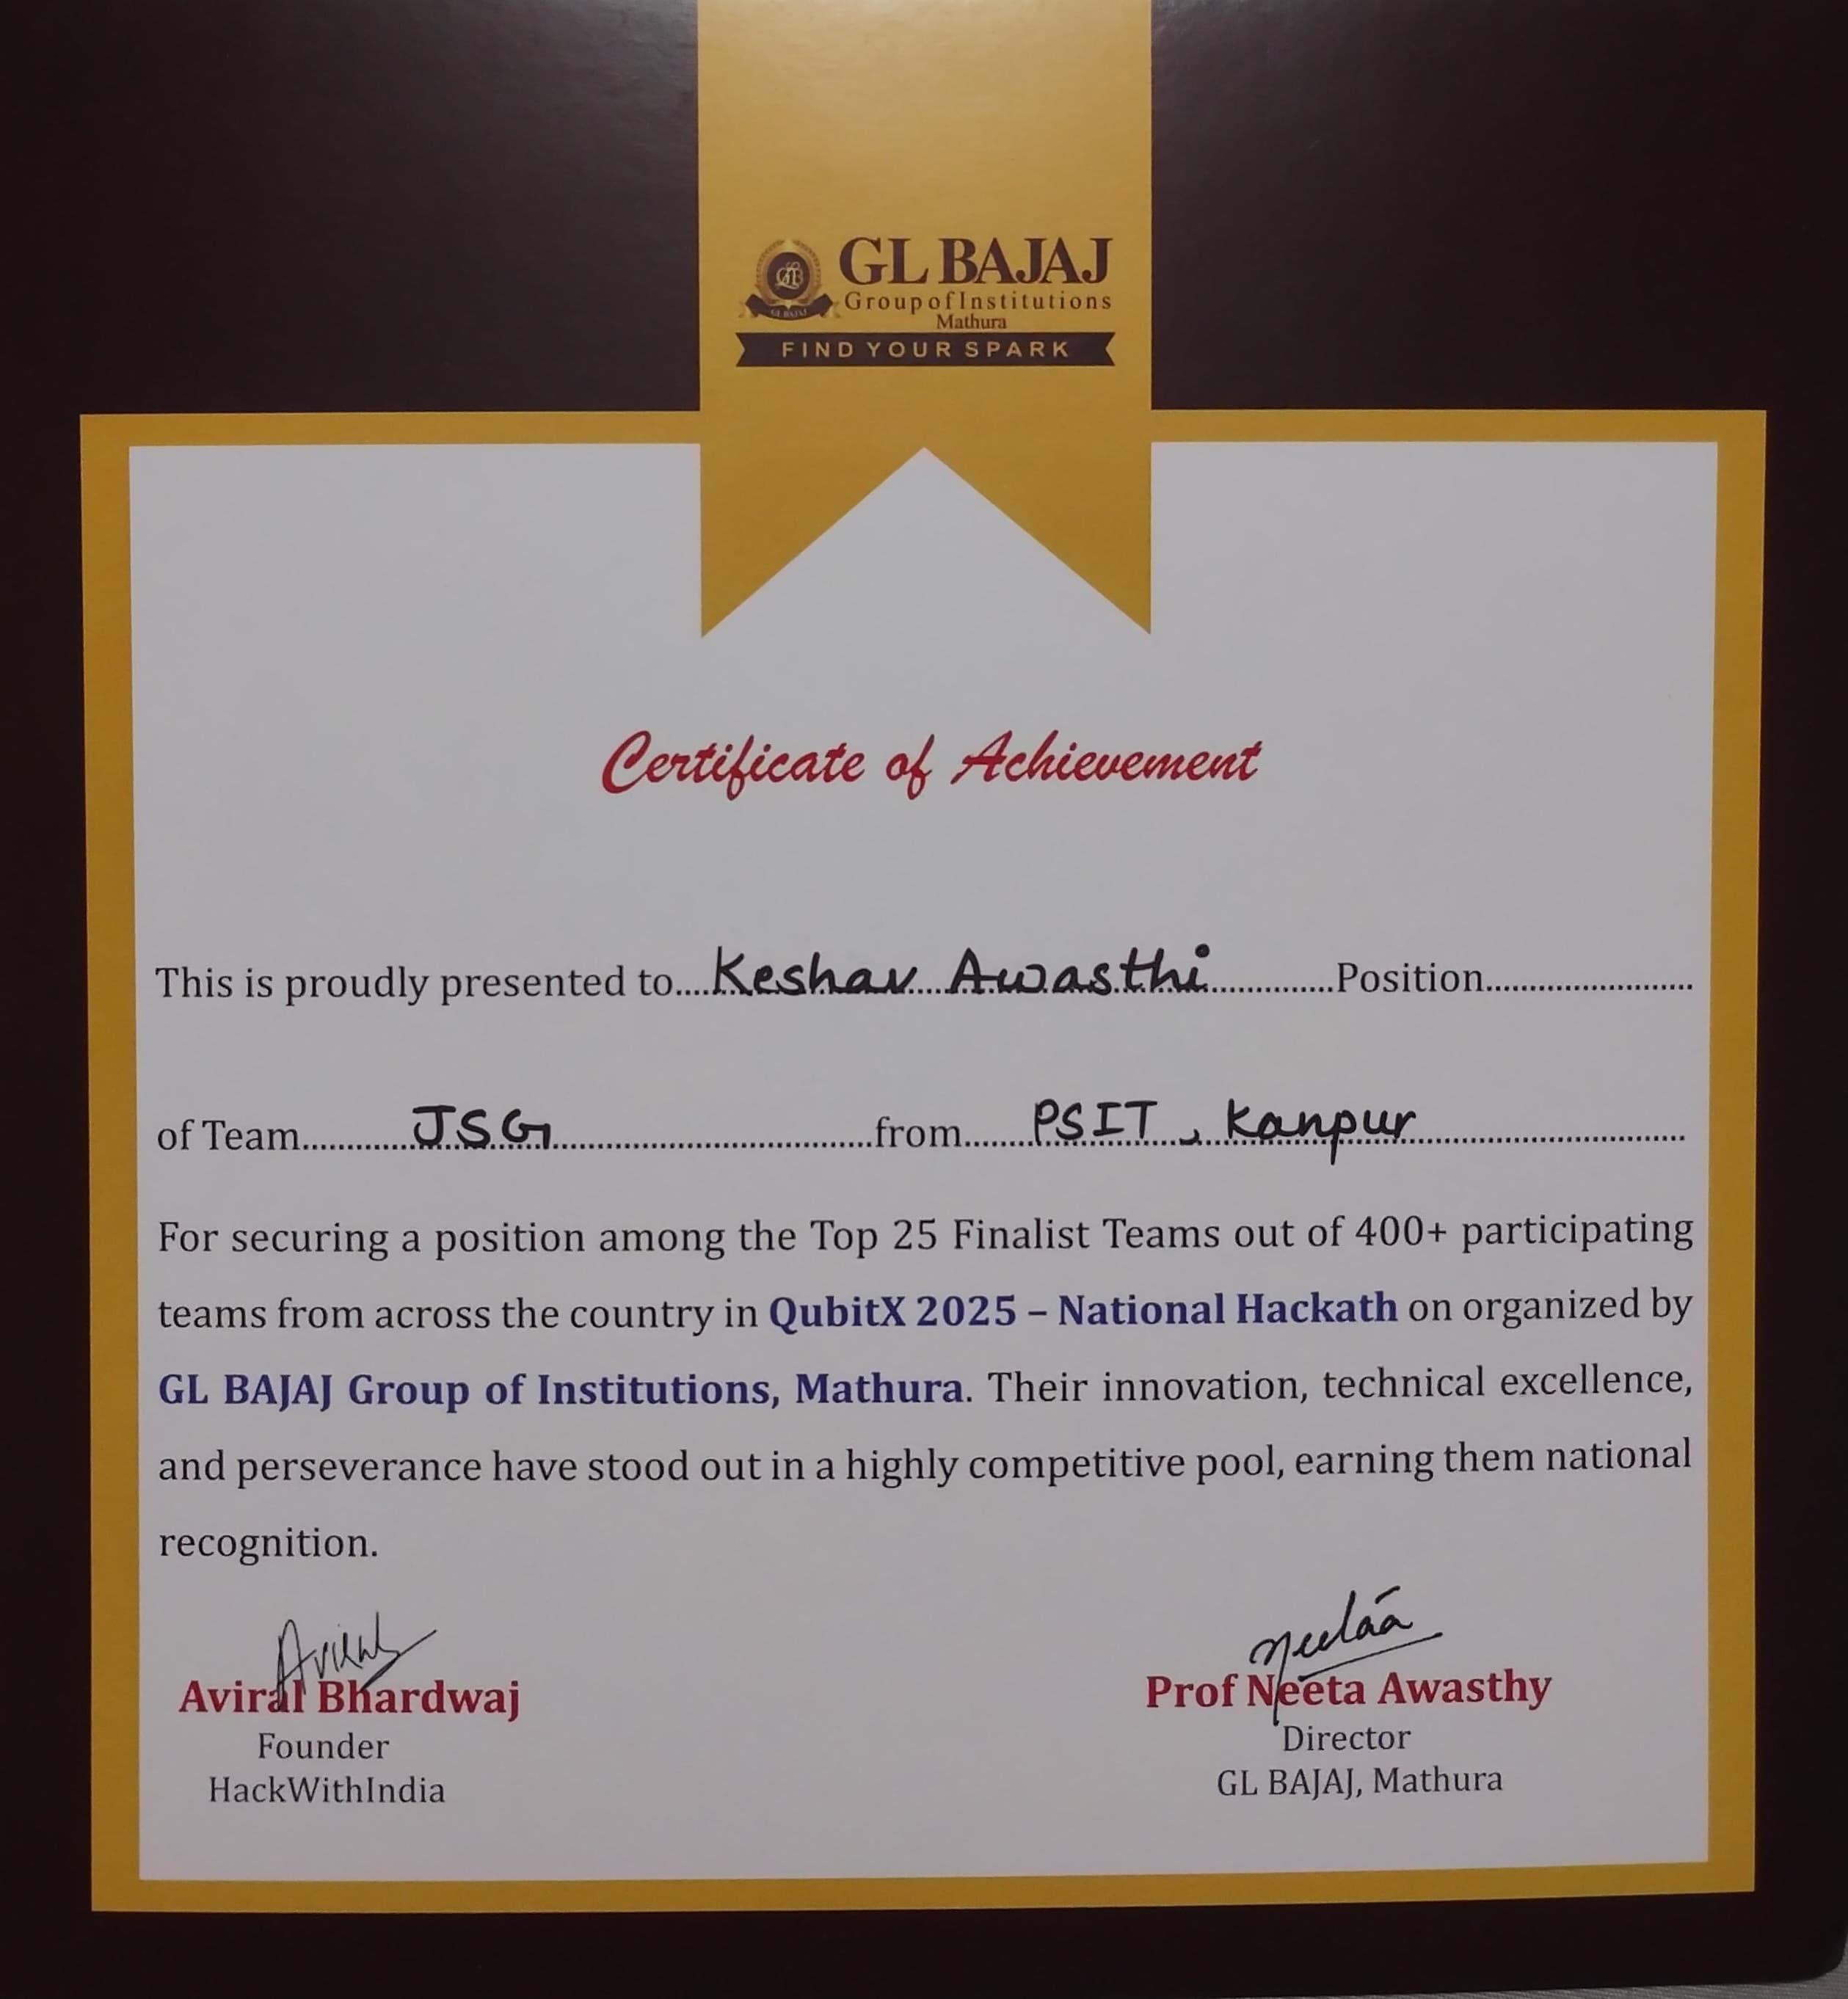 GL BAJAJ
Group of Institutions
Mathura
FIND YOUR SPARK
GL BAJAJ
Certificate of Achievement
This is proudly presented to....Keshav Awasthi..............Position........................
of Team............JSG....................................from........PSIT, Kanpur..............................
For securing a position among the Top 25 Finalist Teams out of 400+ participating
teams from across the country in QubitX 2025 – National Hackath on organized by
GL BAJAJ Group of Institutions, Mathura. Their innovation, technical excellence,
and perseverance have stood out in a highly competitive pool, earning them national
recognition.
Aviral
Aviral Bhardwaj
Founder
HackWithIndia
Neetaa
Prof Neeta Awasthy
Director
GL BAJAJ, Mathura